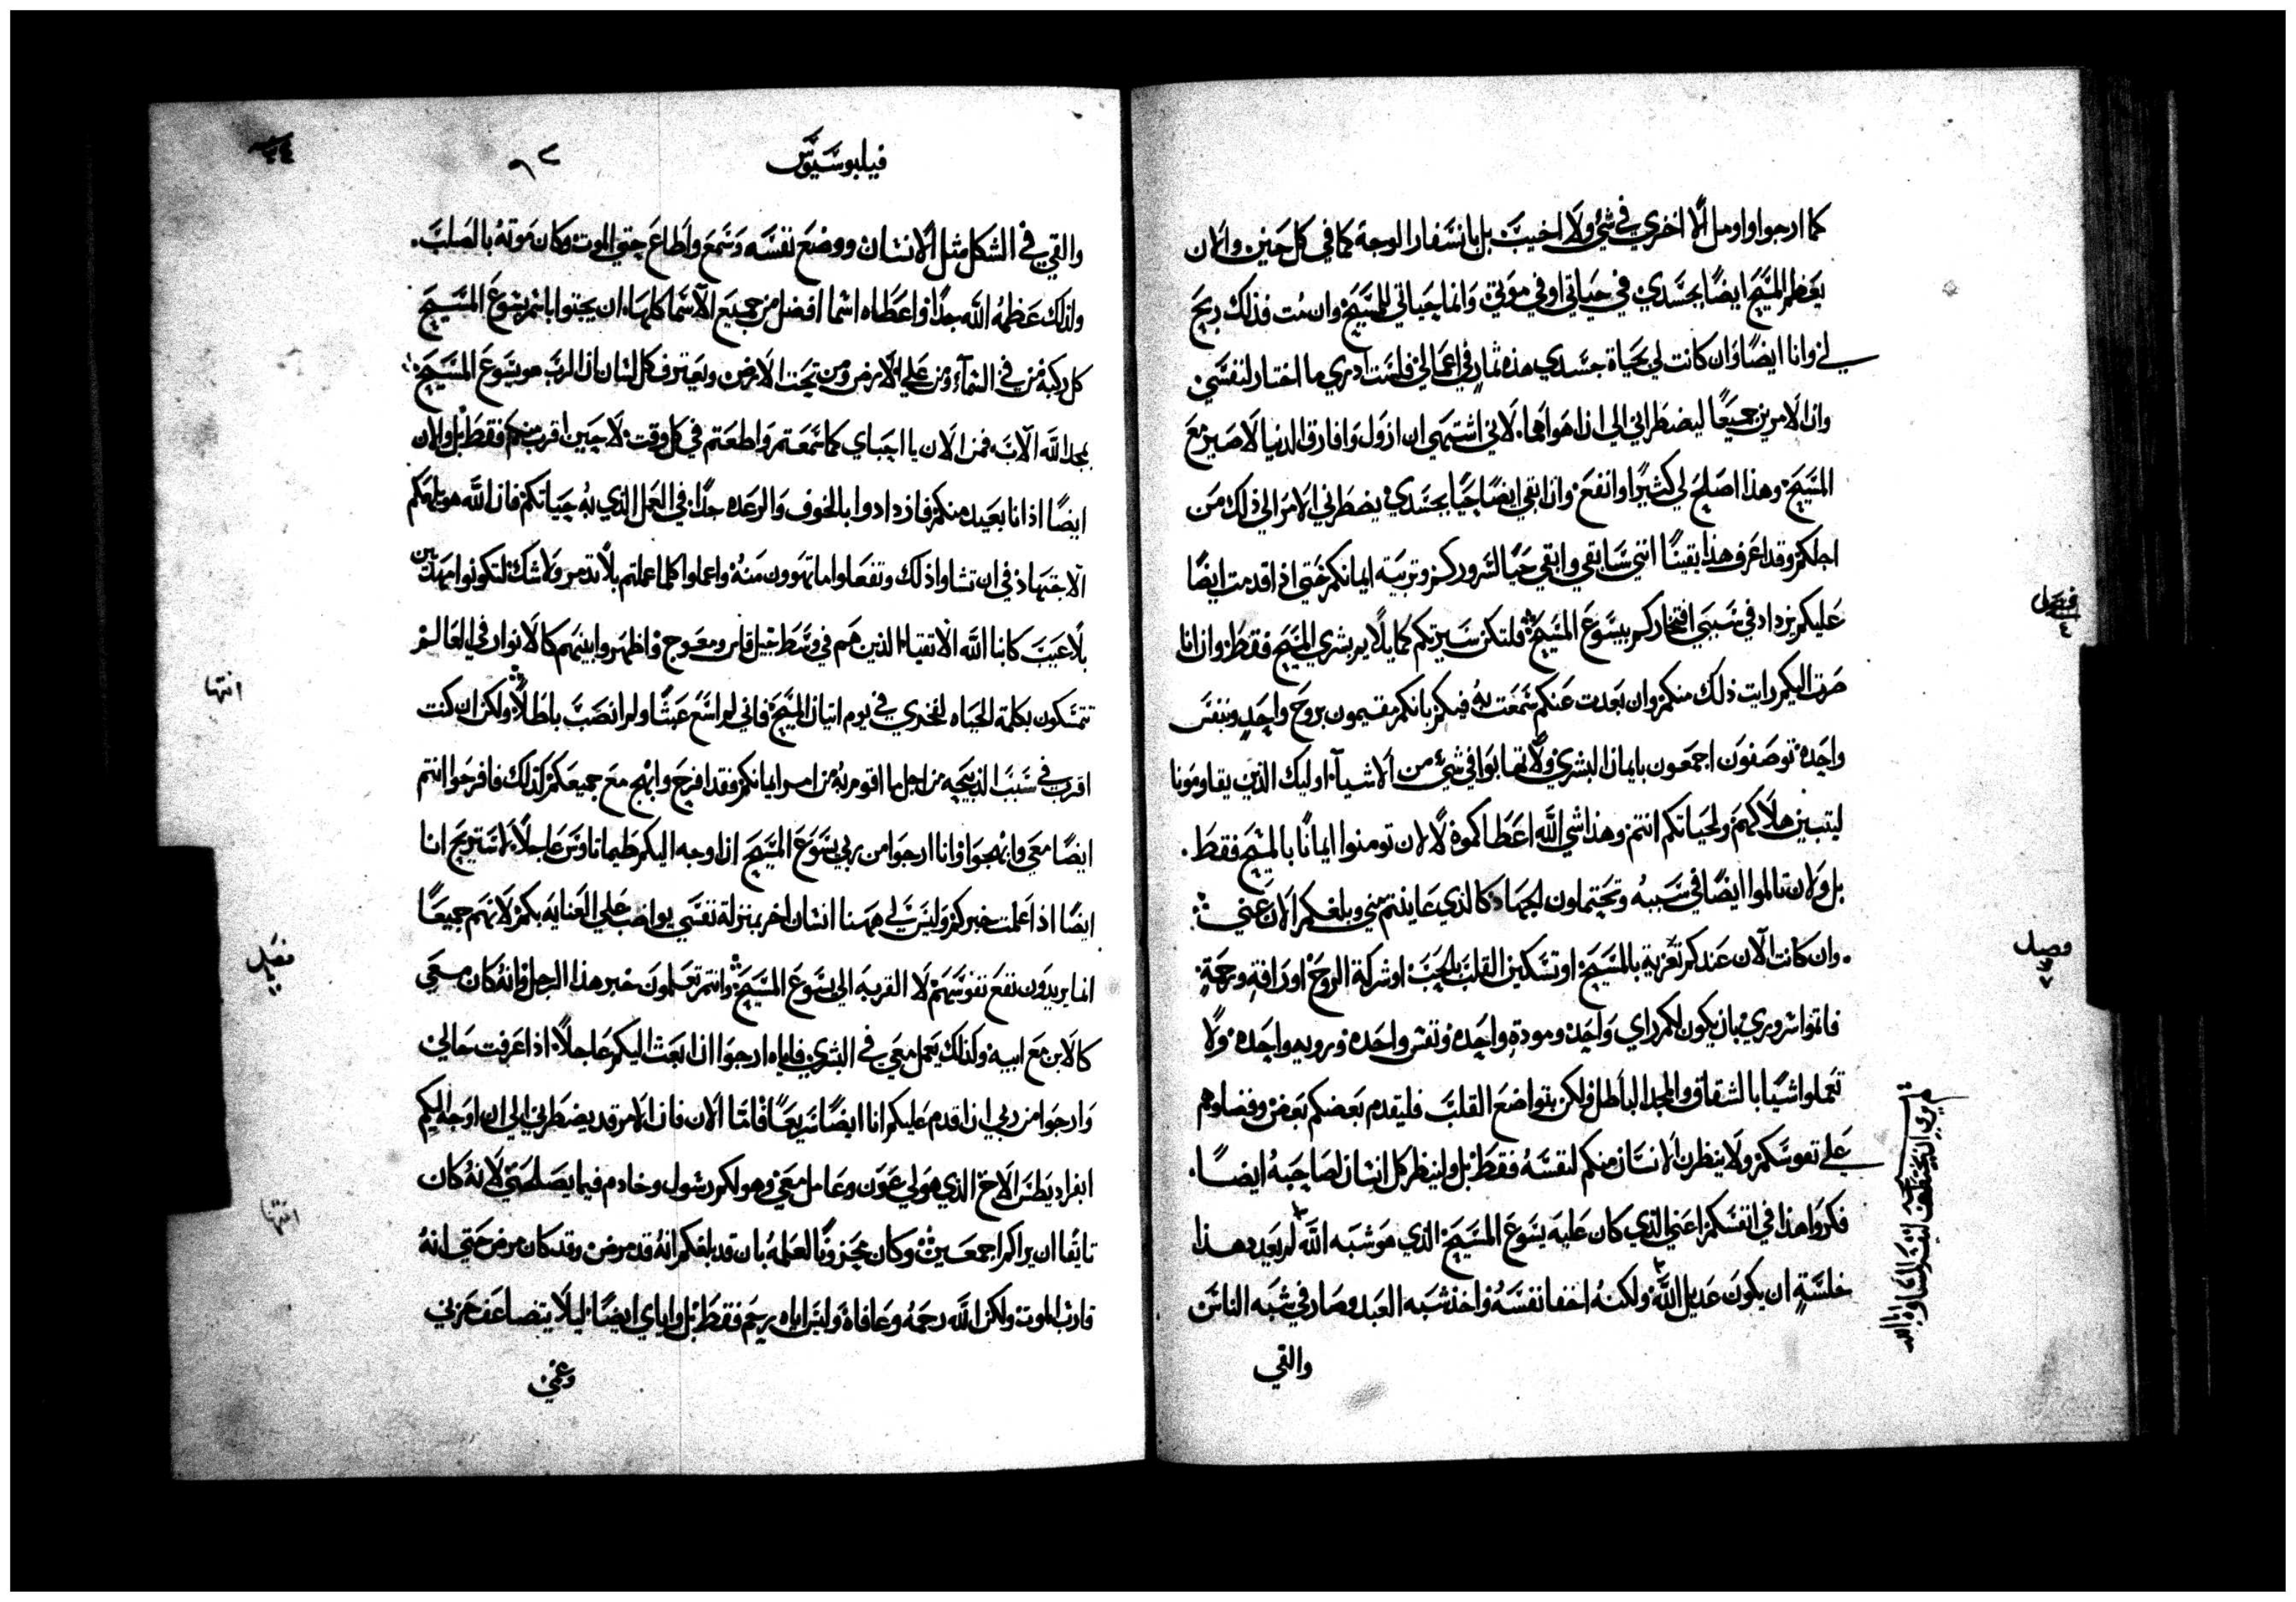 كما ارجوا واومل الا اخزي في شئ ولا اخيب بل بانسفار الوجه كما في كل حين والان
يعظم المسيح ايضًا بجسدي في حياتي او في موتي وانما حياتي للمسيح وان مت فذلك ربح
لي وانا ايضًا وان كانت لي بحياة جسدي هذه ثمار في اعمالي فلست ادري ما اختار لنفسي
وان الامرين جميعًا ليضطراني الي ان اهواهما لاني اشتهي ان ازول وافارق الدنيا لاصير مع
المسيح وهذا اصلح لي كثيرًا وانفع وان ابقي ايضًا حيًا بجسدي يضطرني الامر الي ذلك من
اجلكم وقد اعرف هذا يقينًا انني سابقي وابقي حيًا لسروركم وتربية ايمانكم حتي اذا قدمت ايضًا
عليكم يزداد في سببي افتخاركم بيسوع المسيح فلتكن سيرتكم كما يلايم بشري المسيح فقط وان انا
صرت اليكم رايت ذلك منكم وان بعدت عنكم سمعت به فيكم بانكم مقيمون بروح واحد وبنفس
واحدة توصفون اجمعون بايمان البشري ولا تهابوا في شئ من الاشيآ اوليك الذين يقاومونا
ليتبين هلاكهم ولحياتكم انتم وهذا شي الله اعطاكموه لا لان تومنوا ايمانًا بالمسيح فقط
بل ولان تالموا ايضًا في سببه وتحتملون الجهاد كالذي عاينتم مني وبلغكم الان عني
وان كانت الان عندكم تعزية بالمسيح او تسكين القلب بالحب او شركة الروح او رافة ورحمة
فاتموا سروري بان يكون لكم راي واحد ومودة واحده ونفس واحده وروية واحده ولا
تعملوا شيًا بالشقاق والمجد الباطل ولكن بتواضع القلب فليقدم بعضكم بعض وفضلوهم
علي نفوسكم ولا ينظرن الانسان منكم لنفسه فقط بل ولينظر كل انسان لصاحبه ايضًا
فكروا هذا في انفسكم اعني الذي كان عليه يسوع المسيح الذي هو شبه الله لم يعدد هذا
خلسة ان يكون عديل الله ولكنه اخفا نفسه واخذ شبه العبد وصار في شبه الناس
والقي
فصل
٤
فصل
فيلبوسيوس
والقي في الشكل مثل الانسان ووضع نفسه وسمع واطاع حتي الموت وكان موته بالصلب
ولذلك عظمه الله جدًا واعطاه اسما افضل من جميع الاسما كلها ان يجثوا باسم يسوع المسيح
كل ركبة من في السمآء ومن علي الارض ومن تحت الارض ويعترف كل لسان ان الرب هو يسوع المسيح
لمجد الله الاب فمن الان يا احباي كما سمعتم واطعتم في كل وقت لا حين اقرب منكم فقط بل والان
ايضًا اذ انا بعيد منكم فازدادوا بالخوف والرعده جدًا في العمل الذي به حياتكم فان الله هو يلهمكم
الاجتهاد في ان تشاوا ذلك وتفعلوا ما تهوون منه واعملوا كلما عملتم بلا تدمر ولا شك لتكونوا مهذبين
بلا عيب كابنا الله الاتقياء الذين هم في وسط جيل قاس ومعوج واظهروا بينهم كالانوار في العالم
تتمسكون بكلمة الحياه لفخري في يوم اتيان المسيح فاني لم اسع عبثًا ولم انصب باطلًا ولكن ان كنت
اقرب في سبب الذبيحه من اجل ما اقوم به من امر ايمانكم فقد افرح وابهج مع جميعكم لذلك فافرحوا انتم
ايضًا معي وابهجوا وانا ارجوا من ربي يسوع المسيح ان اوجه اليكم طيماتاوس عاجلًا لاستريح انا
ايضًا اذا علمت خبركم وليس لي ههنا انسان اخر بمنزلة نفسي يواضب علي العنايه بكم لانهم جميعًا
انما يريدون نفع نفوسهم لا القربه الي يسوع المسيح وانتم تعلمون خبر هذا الرجل وانه كان معي
كالابن مع ابيه وكذلك يعمل معي في البشري فاياه ارجوا ان ابعث اليكم عاجلًا اذا عرفت حالي
وارجوا من ربي ان اقدم عليكم انا ايضًا سريعًا فاما الان فان الامر قد يضطرني الي ان اوجه اليكم
ابفراديطس الاخ الذي هو لي عون وعامل معي وهو لكم رسول وخادم فيما يصلحني لانه كان
تايقًا ان يراكم اجمعين وكان محزونًا لعلمه بان قد بلغكم انه قد مرض وقد كان مرض حتي انه
قارب الموت ولكن الله رحمه وعافاه وليس اياه رحم فقط بل واياي ايضًا ليلا يتضاعف حزني
وغمي
انتها
فصل
انتها